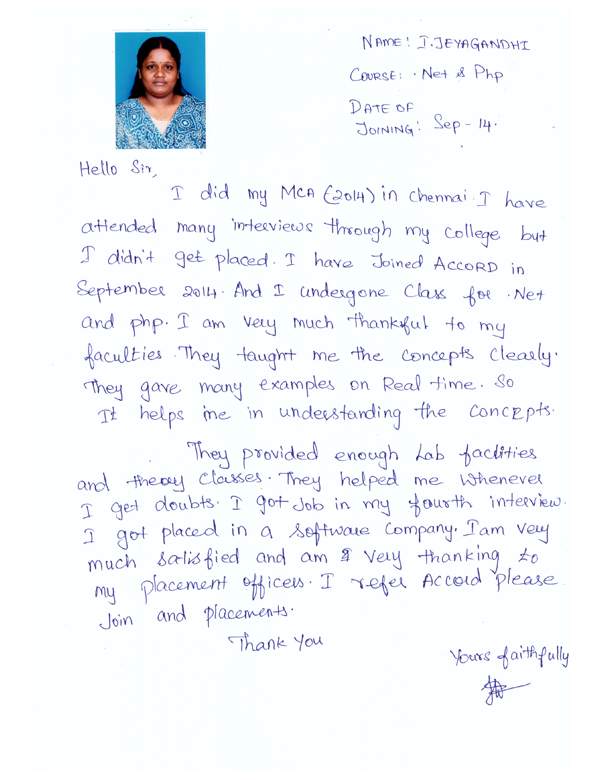 NAME: I.JEYAGANDHI
COURSE: .Net & Php
DATE OF
JOINING: Sep-14.
Hello Sir,
I did my MCA (2014) in Chennai. I have
attended many interviews through my college but
I didn't get placed. I have Joined ACCORD in
September 2014. And I undergone Class for .Net
and php. I am very much thankful to my
faculties. They taught me the concepts clearly.
They gave many examples on Real time. So
It helps me in understanding the concepts.
They provided enough Lab faclities
and theory classes. They helped me whenever
I get doubts. I got Job in my fourth interview.
I got placed in a software company. I am very
much satisfied and am I very thanking to
my placement officers. I refer Accord please
Join and placements.
Thank You
Yours faithfully